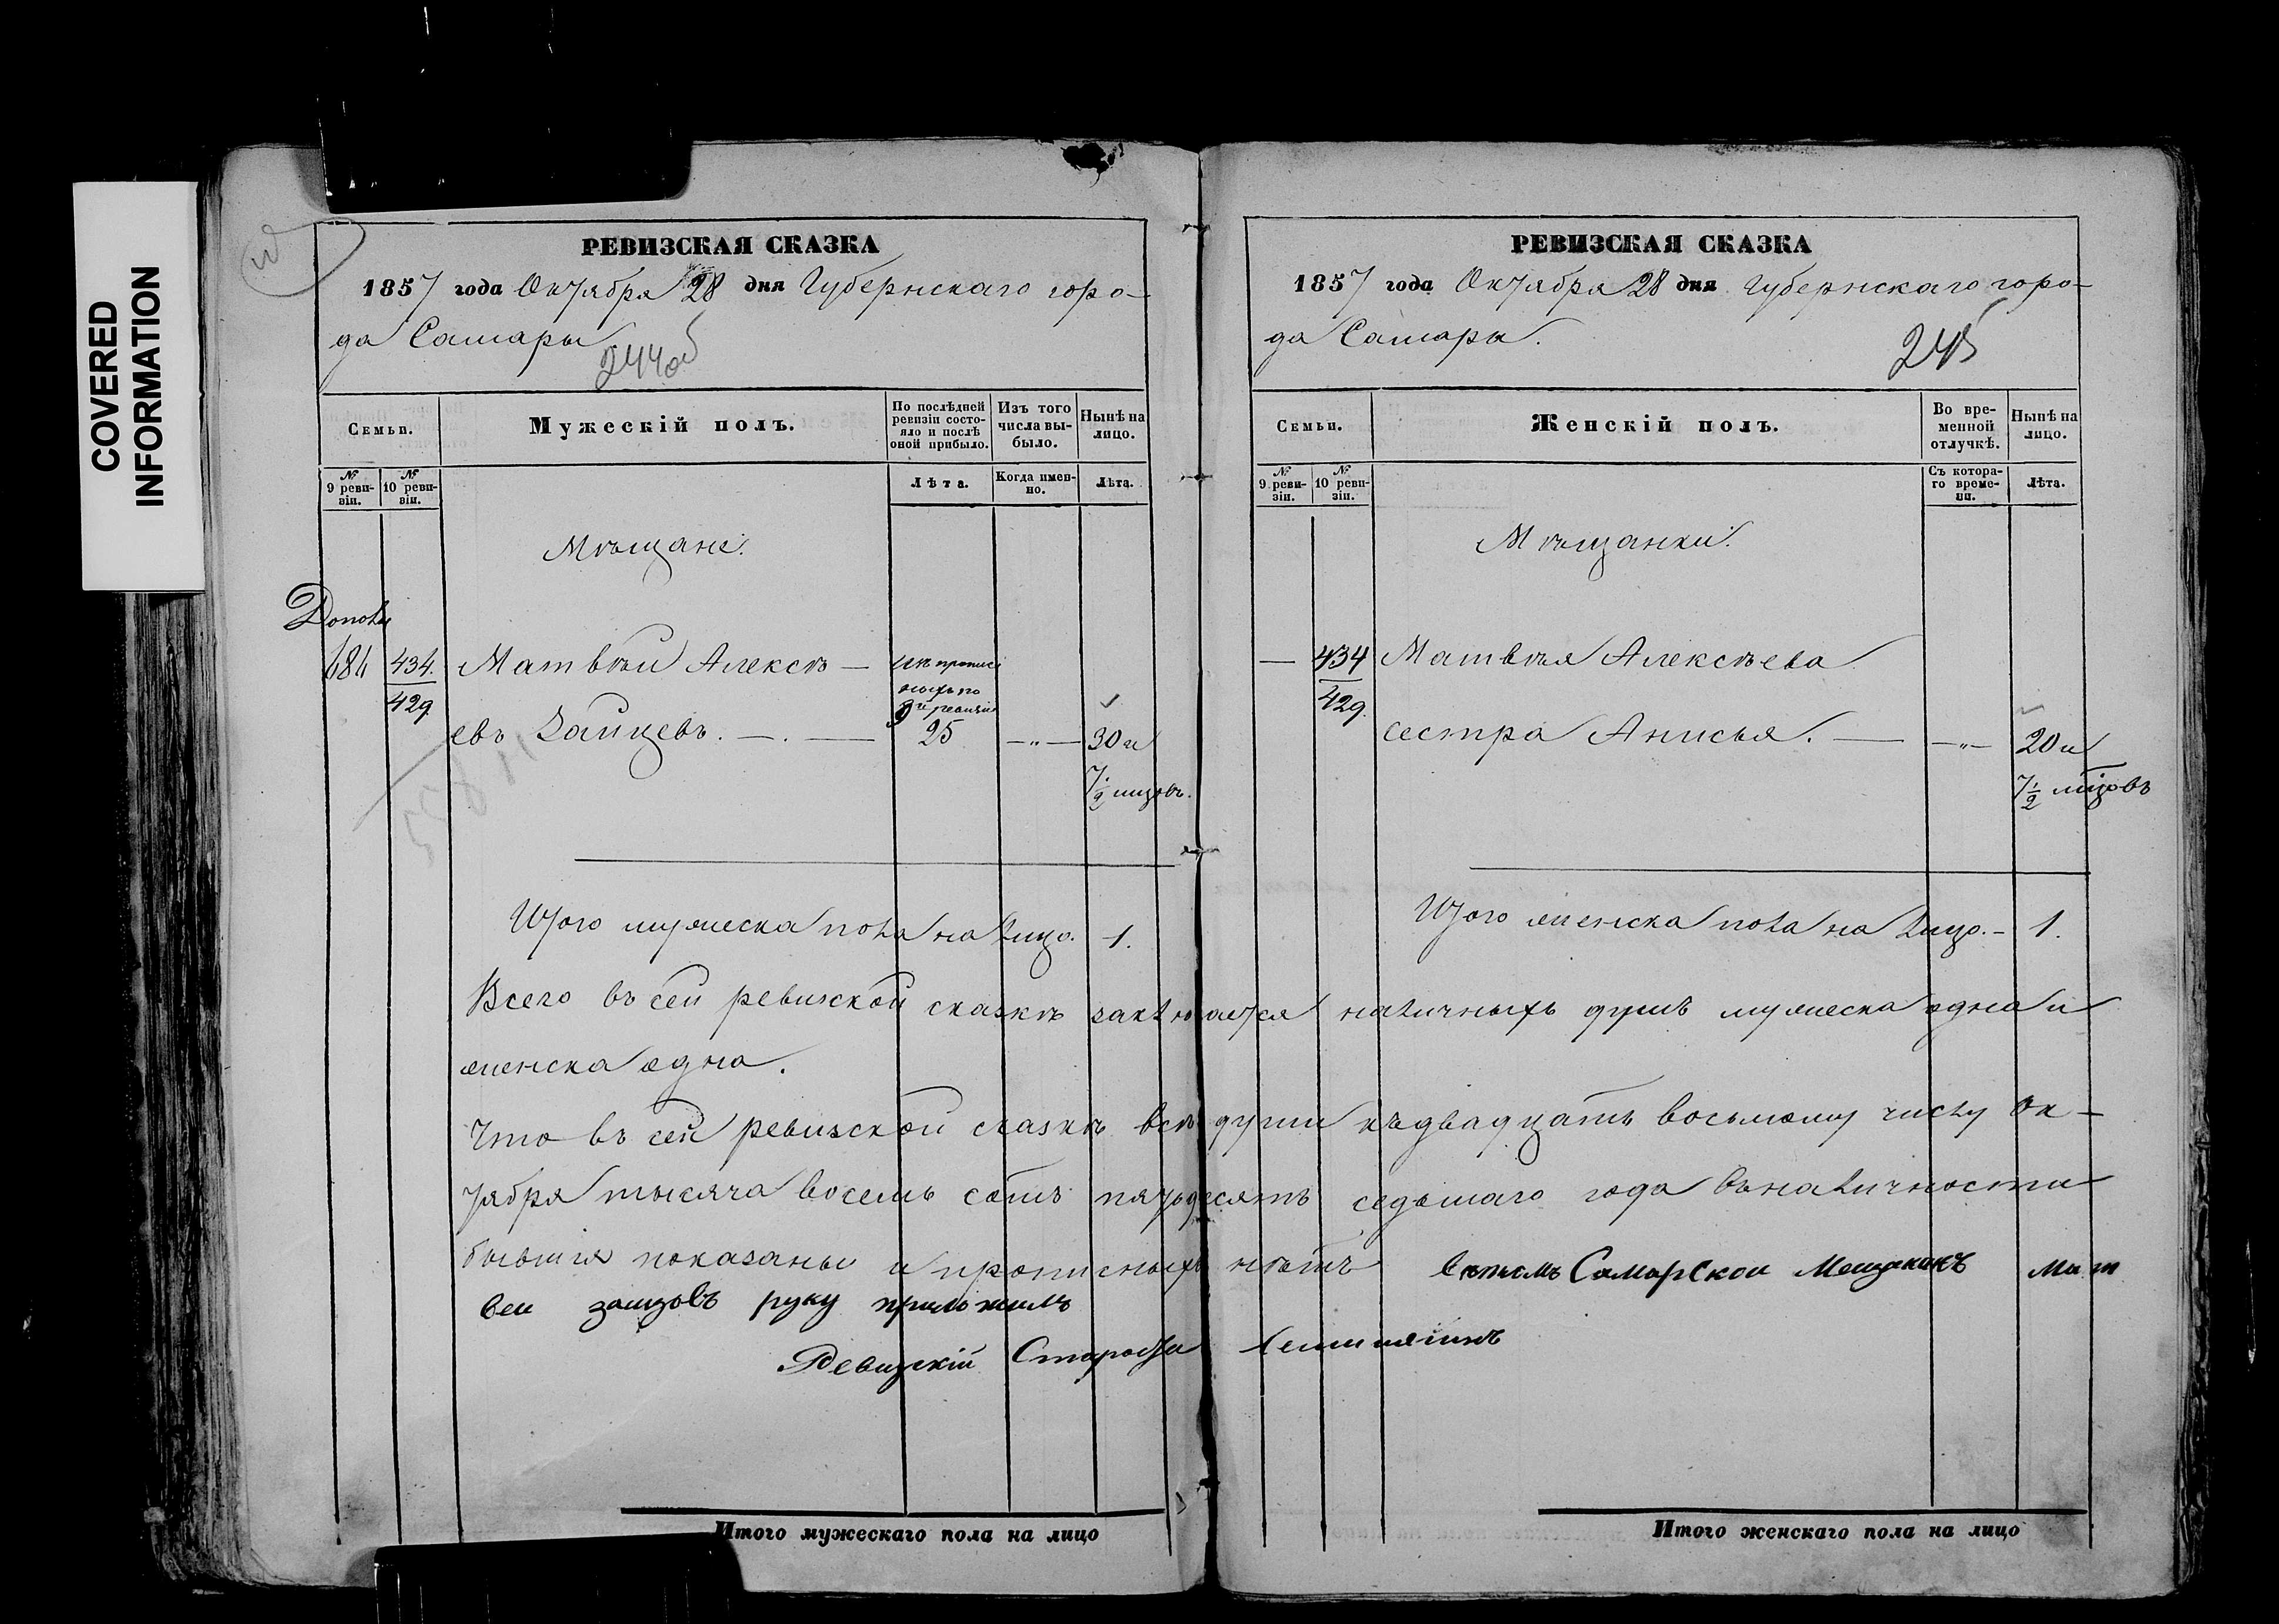 COVERED
INFORMATION
РЕВИЗСКАЯ СКАЗКА
1857 года Октября 28 дня Губернскаго горо-
да Самары
244об
Семьи.
Мужескій полъ.
По послѣдней ревизіи состояло и послѣ оной прибыло.
Изъ того числа выбыло.
Нынѣ на лицо.
№ 9 ревизіи.
№ 10 ревизіи.
Лѣта.
Когда именно.
Лѣта.
Мѣщане.
434.
429.
Матвѣй Алексѣ-
евъ Зайцевъ.
изъ прописныхъ по 9й ревизіи
25
30 и
7½ мицовъ.
Итого мужеска пола на лицо. 1.
РЕВИЗСКАЯ СКАЗКА
1857 года Октября 28 дня Губернскаго горо-
да Самары.
245
Семьи.
Женскій полъ.
Во временной отлучкѣ.
Нынѣ на лицо.
№ 9 ревизіи.
№ 10 ревизіи.
Съ котораго времени.
Лѣта.
Мѣщанки.
434
429.
Матвѣя Алексѣева
сестра Анисья.
20 и
7½ мицовъ
Итого женска пола на лицо. - 1.
Всего въ сей ревизской сказкѣ заключается наличныхъ душъ мужеска одна и
женска одна.
Что въ сей ревизской сказкѣ всѣ души къ двадцать восьмому числу Ок-
тября тысяча восемь сотъ пятьдесятъ седьмаго года въ наличности
бывшія показаны и прописныхъ нѣтъ въ томъ Самарской Мещанинъ Мат
вей зайцовъ руку приложилъ
Ревизскій Староста
Итого мужескаго пола на лицо
Итого женскаго пола на лицо